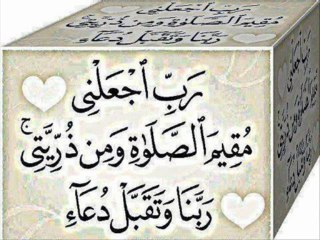 رَبِّ ٱجْعَلْنِى
مُقِيمَ ٱلصَّلَوٰةِ وَمِن ذُرِّيَّتِى ۚ
رَبَّنَا وَتَقَبَّلْ دُعَآءِ
رَبِّ ٱجْعَلْنِى
مُقِيمَ ٱلصَّلَوٰةِ وَمِن ذُرِّيَّتِى ۚ
رَبَّنَا وَتَقَبَّلْ دُعَآءِ